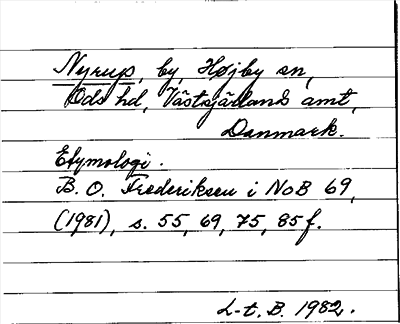 Nyrup, by, Højby sn,
Ods hd, Västsjälland amt,
Danmark.
Etymologi.
B. O. Frederiksen i NoB 69,
(1981), s. 55, 69, 75, 85 f.
L-t. B. 1982.